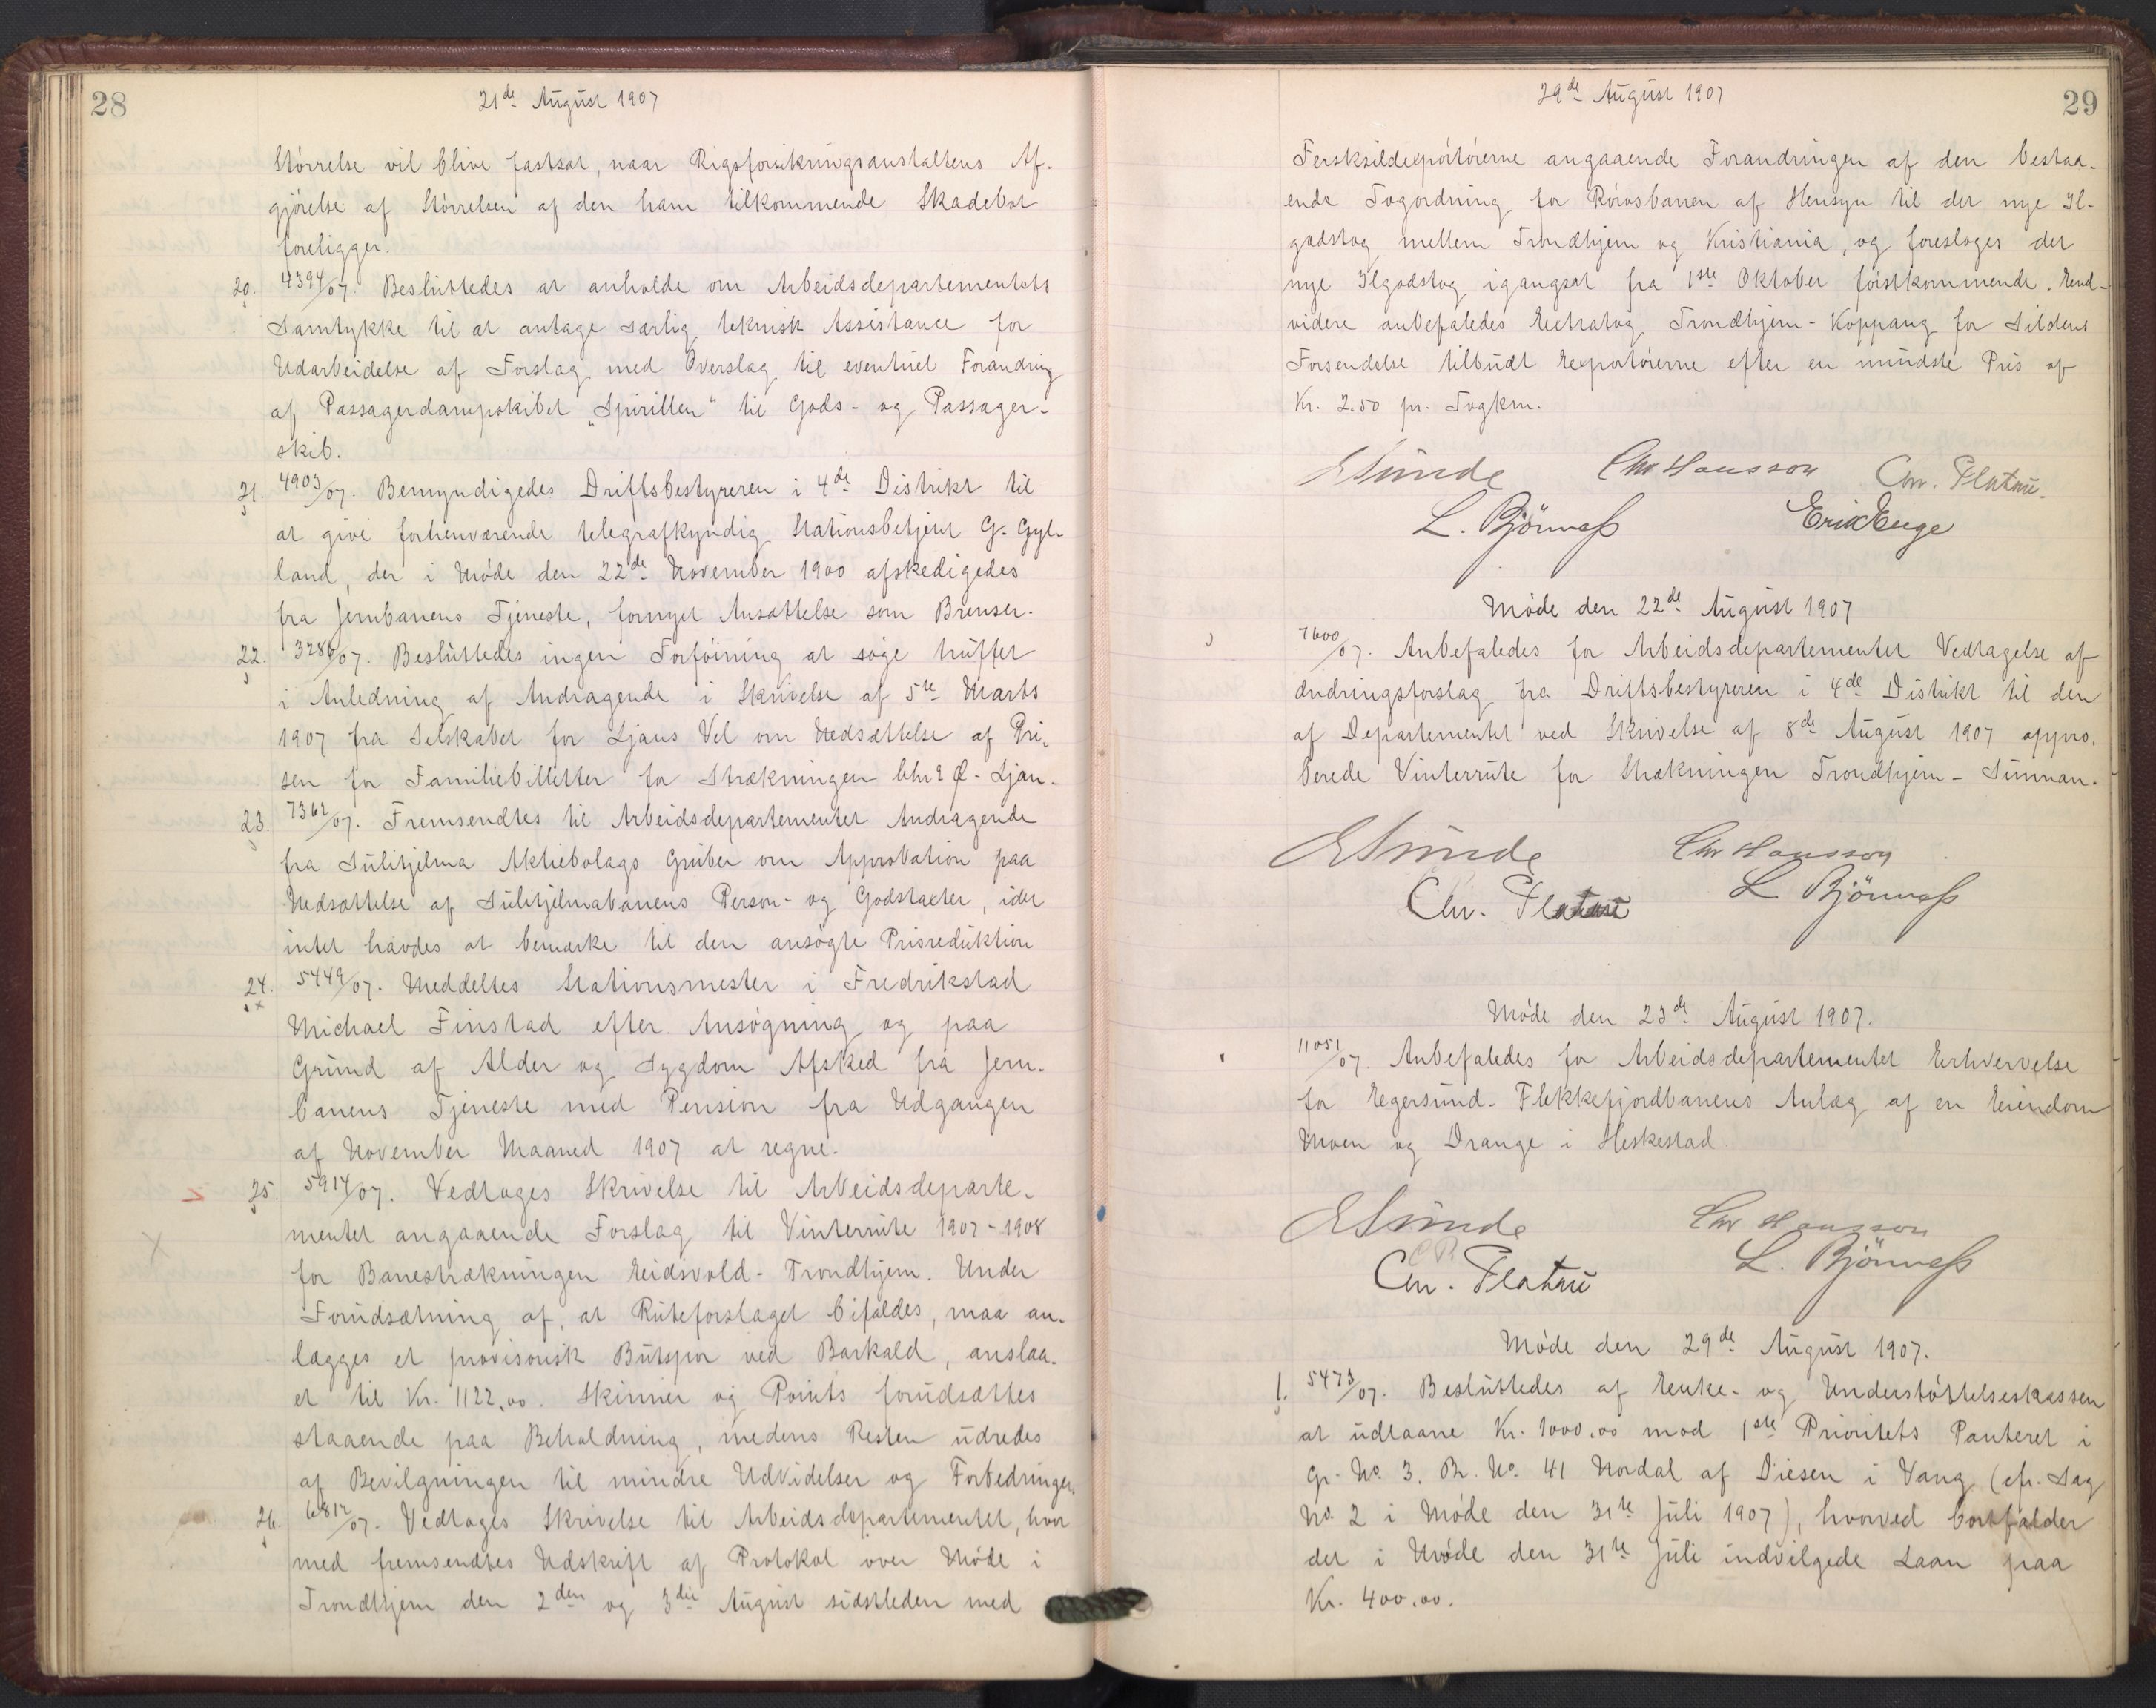 28
21de August 1907
Størrelse vil blive fastsat, naar Rigsforsikringsanstaltens Af-
gjørelse af Størrelsen af den ham tilkommende Skadebot
foreligger.
20. 4394/07. Besluttedes at anholde om Arbeidsdepartementets
Samtykke til at antage særlig teknisk Assistance for
Udarbeidelse af Forslag med Overslag til eventuel Forandring
af Passagerdampskibet „Spirillen" til Gods- og Passager-
skib.
21. 4903/07. Bemyndigedes Driftsbestyreren i 4de Distrikt til
at give forhenværende telegrafkyndig Stationsbetjent G. Gyl-
land, der i Møde den 22de November 1900 afskedigedes
fra Jernbanens Tjeneste, fornyet Ansættelse som Bremser.
22. 3286/07. Besluttedes ingen Forføining at søge truffet
i Anledning af Andragende i Skrivelse af 5te Marts
1907 fra Selskabet for Ljans Vel om Nedsættelse af Pri-
sen for Familiebilletter for Strækningen Ø - Ljan.
23. 7362/07. Fremsendtes til Arbeidsdepartementet Andragende
fra Sulitjelma Aktiebolags Gruber om Approbation paa
Nedsættelse af Sulitjelmabanens Person- og Godstaxter, idet
intet havdes at bemærke til den ansøgte Prisreduktion
24. 5449/07. Meddeltes Stationsmester i Fredrikstad
Michael Finstad efter Ansøgning og paa
Grund af Alder og Sygdom Afsked fra Jern-
banens Tjeneste med Pension fra Udgangen
af November Maaned 1907 at regne.
25. 5914/07. Vedtoges Skrivelse til Arbeidsdeparte-
mentet angaaende Forslag til Vinterrute 1907-1908
for Banestrækningen Eidsvold - Trondhjem. Under
Forudsætning af, at Ruteforslaget bifaldes, maa an-
lægges et provisorisk Butspor ved Barkald, anslaa-
et til Kr. 1122,00. Skinner og Points forudsættes
staaende paa Beholdning, medens Resten udredes
af Bevilgningen til mindre Udvidelser og Forbedringer.
26. 6812/07. Vedtoges Skrivelse til Arbeidsdepartementet, hvor
med fremsendtes Udskrift af Protokol over Møde i
Trondhjem den 2den og 3die August sidstleden med
29
29de August 1907
Fersksildexportørerne angaaende Forandringen af den bestaa-
ende Togordning for Rørosbanen af Hensyn til det nye Il-
godstog mellem Trondhjem og Kristiania, og foresloges det
nye Ilgodstog igangsat fra 1ste Oktober førstkommende. End-
videre anbefaledes Extratog Trondhjem - Koppang for Sildens
Forsendelse tilbudt Exportørerne efter en mindste Pris af
Kr. 2.50 pr. Togkm.
ESunde Chr Hansson Chr. Platou.
L. Bjørness Erik Enge
Møde den 22de August 1907
7600/07. Anbefaledes for Arbeidsdepartementet Vedtagelse af
Ændringsforslag fra Driftsbestyreren i 4de Distrikt til den
af Departementet ved Skrivelse af 8de August 1907 appro-
berede Vinterrute for Strækningen Trondhjem - Sunnan.
ESunde Chr Hansson
Chr. Platou L Bjørness
Møde den 23de August 1907.
11051/07. Anbefaledes for Arbeidsdepartementet Erhvervelse
for Egersund - Flekkefjordbanens Anlæg af en Eiendom
Moen og Drange i Heskestad
ESunde Chr Hansson
Chr. Platou L. Bjørness
Møde den 29de August 1907.
1. 5473/07. Besluttedes af Enke- og Understøttelseskassen
at udlaane Kr. 1000.00 mod 1ste Prioritets Panteret i
Gr. No. 3. Br. No. 41 Nordal af Diesen i Vang (cfr. Sag
No. 2 i Møde den 31te Juli 1907), hvorved bortfalder
det i Møde den 31te Juli indvilgede Laan paa
Kr. 400.00.